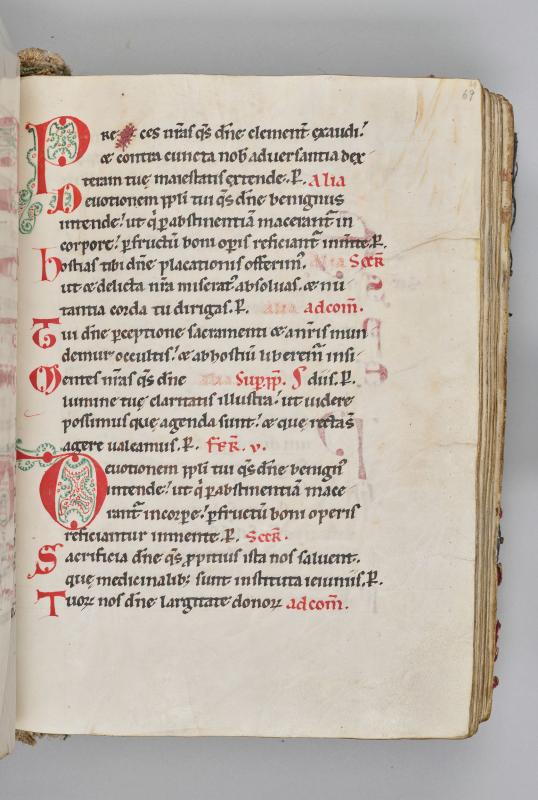 69
PRe ces nr̄as qs̄ dn̄e clement̄ exaudi.
& contra cuncta nob̄ adversantia dex
teram tuę maiestatis extende. P. Alia
Devotionem ppl̄i tui qs̄ dn̄e benignus
intende. ut q̇ p abstinentiā macerant̄ in
corpore. p fructū boni op̄is reficiant̄ in m̄te. P.
hostias tibi dn̄e placationis offerim᷒. Secr̄
ut & delicta nr̄a miserat᷒ absolvas. & nu
tantia corda tu dirigas. P. ad com̄.
Tui dn̄e p̄ceptione sacramenti & a nr̄is mun
demur occultis. & ab hostiū liberem᷒ insi
Mentes nr̄as qs̄ dn̄e Sup pp̄. S diis. P.
lumine tuę claritatis illustra. ut videre
possimus quę agenda sunt. & quę recta s̄
agere valeamus. P. fer̄. v.
Devotionem ppl̄i tui qs̄ dn̄e benign᷒
intende. ut q̇ p abstinentiā mace
rant̄ in corpore. p fructū boni operis
reficiantur in mente. P. Secr̄.
Sacrificia dn̄e qs̄ p̄pitius ista nos salvent.
quę medicinalib; sunt instituta ieiuniis. P.
Tuoꝝ nos dn̄e largitate donoꝝ ad com̄.